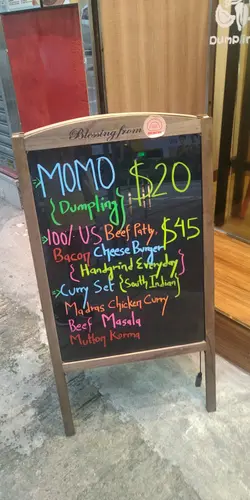 Dumplin
Blessing from
MOMO $20
{Dumpling}
100% US Beef Patty $45
Bacon Cheese Burger
{Handgrind Everyday}
Curry Set {South Indian}
Madras Chicken Curry
Beef Masala
Mutton Korma